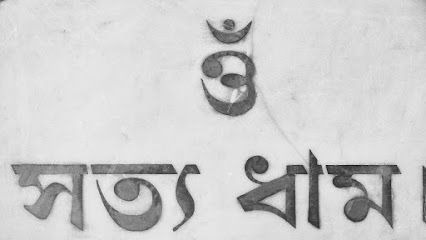 ওঁ
সত্য ধাম।